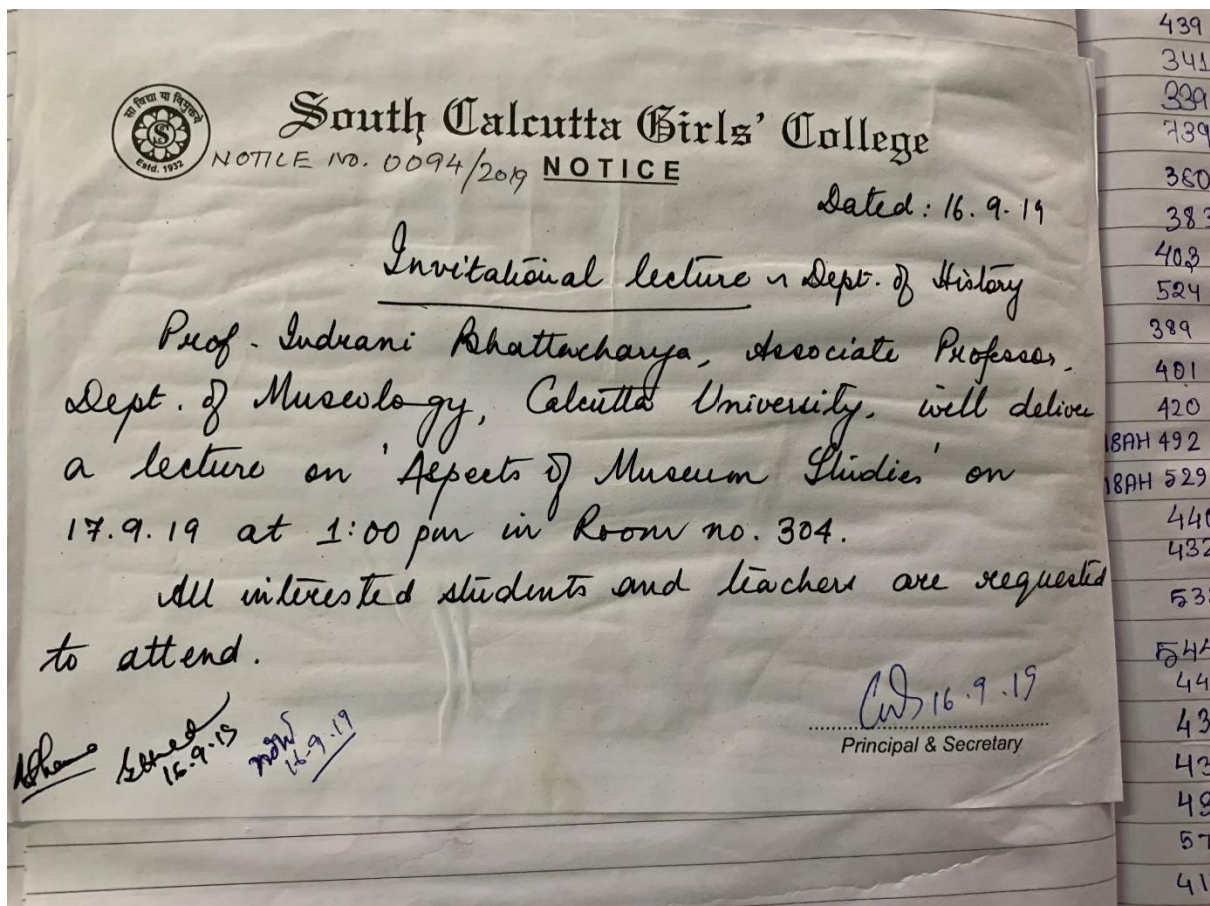 सा विद्या या विमुक्तये
S
Estd. 1932
South Calcutta Girls' College
NOTICE NO. 0094/2019 NOTICE
Dated: 16.9.19
Invitational lecture ~ Dept. of History
Prof. Indrani Bhattacharya, Associate Professor,
Dept. of Museology, Calcutta University, will deliver
a lecture on 'Aspects of Museum Studies' on
17.9.19 at 1:00 pm in Room no. 304.
All interested students and teachers are requested
to attend.
16.9.19
Principal & Secretary
16.9.19
16.9.19
439
341
339
739
360
383
403
524
389
401
420
18AH 492
18AH 529
440
432
544